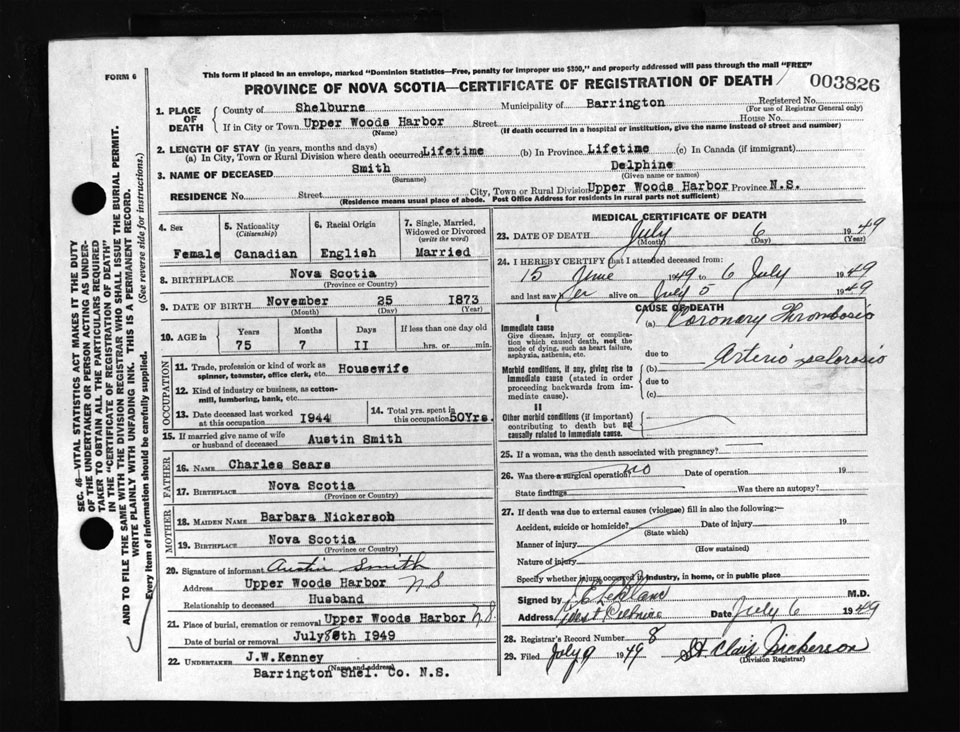 FORM 6
This form if placed in an envelope, marked "Dominion Statistics—Free, penalty for improper use $300," and properly addressed will pass through the mail "FREE"
PROVINCE OF NOVA SCOTIA—CERTIFICATE OF REGISTRATION OF DEATH
003826
SEC. 46—VITAL STATISTICS ACT MAKES IT THE DUTY
OF THE UNDERTAKER OR PERSON ACTING AS UNDER-
TAKER TO OBTAIN ALL THE PARTICULARS REQUIRED
IN THE "CERTIFICATE OF REGISTRATION OF DEATH"
AND TO FILE THE SAME WITH THE DIVISION REGISTRAR WHO SHALL ISSUE THE BURIAL PERMIT.
WRITE PLAINLY WITH UNFADING INK. THIS IS A PERMANENT RECORD.
Every item of information should be carefully supplied. (See reverse side for instructions.)
1. PLACE OF DEATH
County of Shelburne Municipality of Barrington Registered No.
(For use of Registrar General only)
If in City or Town Upper Woods Harbor Street House No.
(Name) (If death occurred in a hospital or institution, give the name instead of street and number)
2. LENGTH OF STAY (in years, months and days)
(a) In City, Town or Rural Division where death occurred Lifetime (b) In Province Lifetime (c) In Canada (if immigrant)
3. NAME OF DECEASED Smith Delphine
(Surname) (Given name or names)
RESIDENCE No. Street City, Town or Rural Division Upper Woods Harbor Province N.S.
(Residence means usual place of abode. Post Office Address for residents in rural parts not sufficient)
4. Sex 5. Nationality (Citizenship) 6. Racial Origin 7. Single, Married, Widowed or Divorced (write the word)
Female Canadian English Married
8. BIRTHPLACE Nova Scotia
(Province or Country)
9. DATE OF BIRTH November 25 1873
(Month) (Day) (Year)
10. AGE in Years Months Days If less than one day old
75 7 II hrs. or min.
OCCUPATION
11. Trade, profession or kind of work as spinner, teamster, office clerk, etc. Housewife
12. Kind of industry or business, as cotton-mill, lumbering, bank, etc.
13. Date deceased last worked at this occupation 1944 14. Total yrs. spent in this occupation 50Yrs.
15. If married give name of wife or husband of deceased Austin Smith
FATHER
16. NAME Charles Sears
17. BIRTHPLACE Nova Scotia
(Province or Country)
MOTHER
18. MAIDEN NAME Barbara Nickerson
19. BIRTHPLACE Nova Scotia
(Province or Country)
20. Signature of informant Austin Smith
Address Upper Woods Harbor N S
Relationship to deceased Husband
21. Place of burial, cremation or removal Upper Woods Harbor N.S.
Date of burial or removal July 8th 1949
22. UNDERTAKER J.W.Kenney
(Name and address)
Barrington Shel. Co. N.S.
MEDICAL CERTIFICATE OF DEATH
23. DATE OF DEATH July 6 1949
(Month) (Day) (Year)
24. I HEREBY CERTIFY that I attended deceased from:
15 June 1949 to 6 July 1949
and last saw her alive on July 5 1949
CAUSE OF DEATH
I
Immediate cause
Give disease, injury or complication which caused death, not the mode of dying, such as heart failure, asphyxia, asthenia, etc.
(a) Coronary Thrombosis
due to
Morbid conditions, if any, giving rise to immediate cause (stated in order proceeding backwards from immediate cause).
(b) Arterio sclerosis
due to
(c)
II
Other morbid conditions (if important) contributing to death but not causally related to immediate cause.
25. If a woman, was the death associated with pregnancy?
26. Was there a surgical operation? no Date of operation 19
State findings Was there an autopsy?
27. If death was due to external causes (violence) fill in also the following:-
Accident, suicide or homicide? Date of injury 19
(State which)
Manner of injury
(How sustained)
Nature of injury
Specify whether injury occurred in industry, in home, or in public place
Signed by M.D.
Address Date July 6 1949
28. Registrar's Record Number 8
29. Filed July 9 1949 St. Clair Nickerson
(Division Registrar)